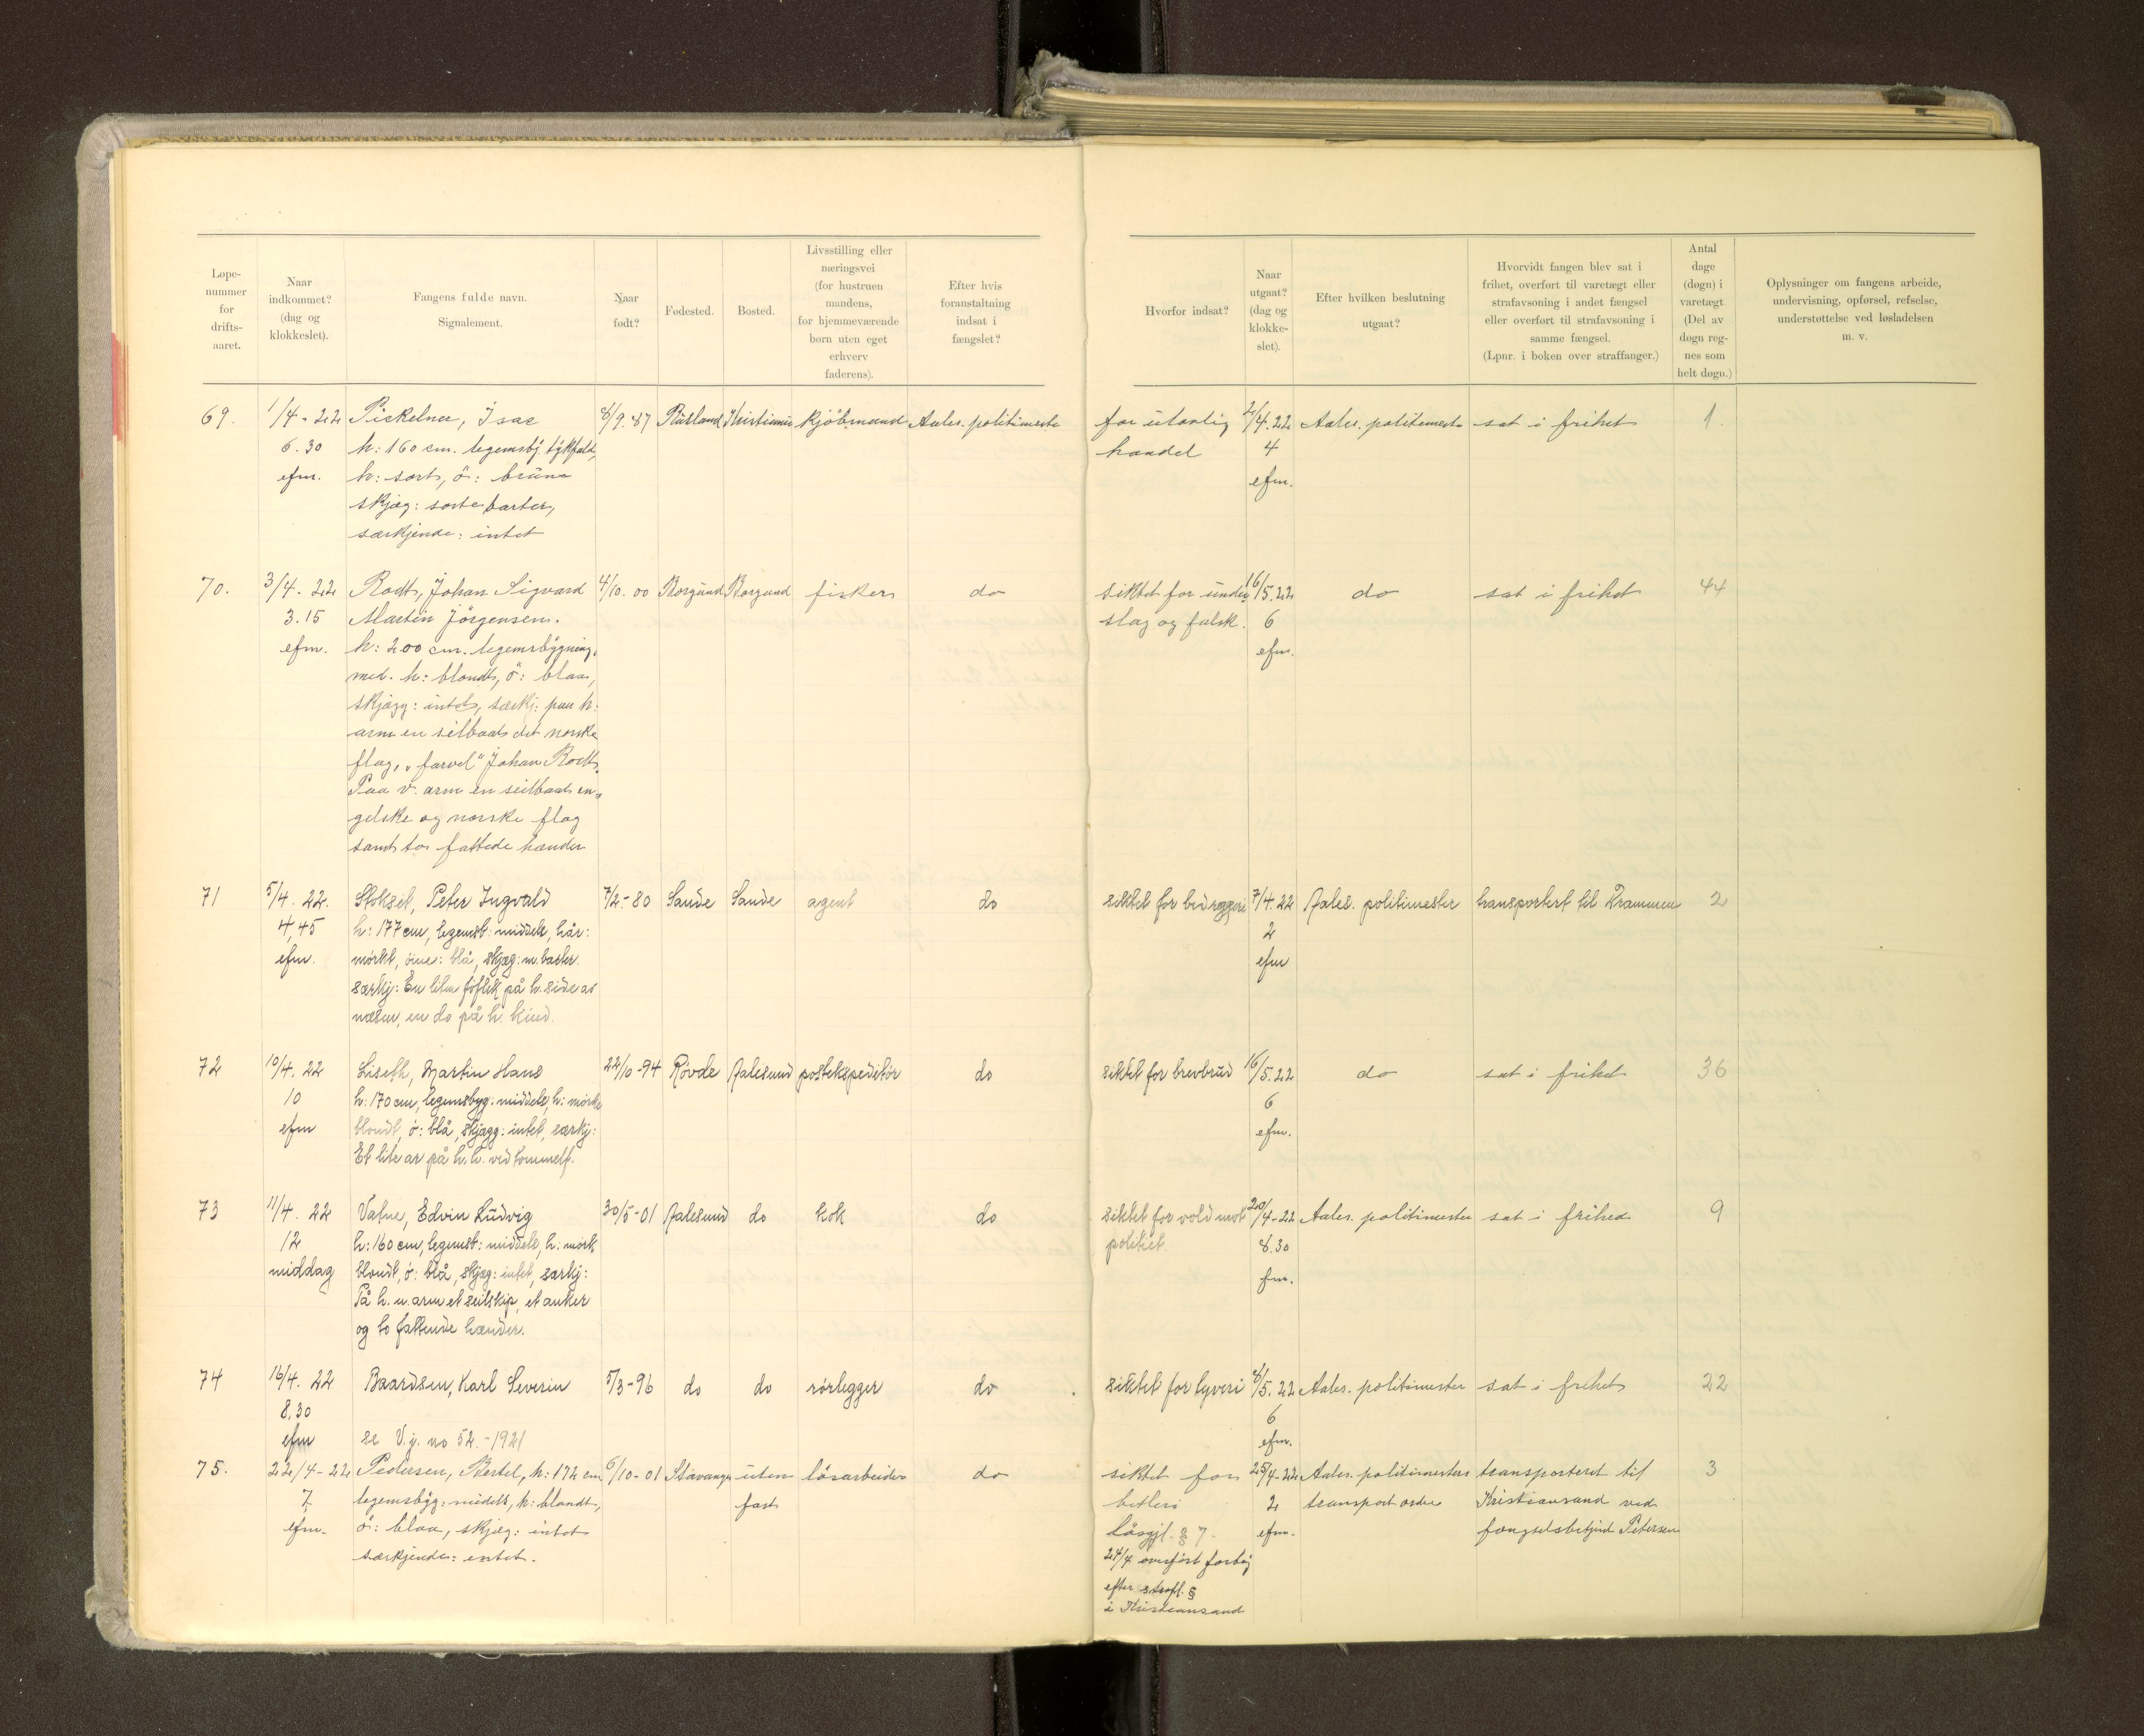 Løpe-
nummer
for
drifts-
aaret.
Naar
indkommet?
(dag og
klokkeslet).
Fangens fulde navn.
Signalement.
Naar
født?
Fødested.
Bosted.
Livsstilling eller
næringsvei
(for hustruen
mandens,
for hjemmeværende
børn uten eget
erhverv
faderens).
Efter hvis
foranstaltning
indsat i
fængslet?
Hvorfor indsat?
Naar
utgaat?
(dag og
klokke-
slet).
Efter hvilken beslutning
utgaat?
Hvorvidt fangen blev sat i
frihet, overført til varetægt eller
strafavsoning i andet fængsel
eller overført til strafavsoning i
samme fængsel.
(Lpnr. i boken over straffanger.)
Antal
dage
(døgn) i
varetægt.
(Del av
døgn reg-
nes som
helt døgn.)
Oplysninger om fangens arbeide,
undervisning, opførsel, refselse,
understøttelse ved løsladelsen
m. v.
69. 1/4-22 Pickelner, Isac 8/9.87 Rusland Kristiania kjöbmand Aales. politimester for ulovlig 2/4.22 Aales. politimester sat i frihet 1.
6.30 h: 160 cm. legemsbÿ. tÿkfald, handel 4
efm. h: sort, ö: brune efm.
skjæg: sorte barter,
særkjende: intet
70. 3/4-22 Rodt, Johan Sigvard 4/10.00 Borgund Borgund fisker do siktet for under 16/5.22 do sat i frihet 44
3.15 Martin Jörgensen. slag og falsk. 6
efm. h: 200 cm. legemsbÿgning, efm.
med. h: blondt, ö: blaa,
skjægg: intet, særkj: paa h:
arm en seilbaat det norske
flag, „farvel" Johan Rodt.
Paa v. arm en seilbaat en-
gelske og norske flag
samt to fattede hænder
71 5/4.22. Stokset, Peter Ingvald 7/2-80 Sande Sande agent do siktet for bedrageri 7/4.22 Aales. politimester transportert til Drammen 2
4,45 h: 177 cm, legemsb: middels, hår: 2
efm. mørkt, öine: blå, skjæg: m. barter. efm
særkj: En liten föflek på h. side av
næsen, en do på h. kind.
72 10/4.22 Liseth, Martin Hans 22/10-94 Røvde Aalesund postekspeditör do siktet for brevbrud 16/5.22 do sat i frihet 36
10 h: 170 cm, legemsbyg: middels, h: mørke 6
efm blondt, ö: blå, skjægg: intet, særkj: efm.
Et lite ar på h. h. ved tommelf.
73 11/4.22 Vatne, Edvin Ludvig 30/5-01 Aalesund do kok do siktet for vold mot 20/4-22 Aales. politimester sat i frihed 9
12 h: 160 cm, legemsb: middels, h: mørk politiet. 8.30
middag blondt, ö: blå, skjæg: intet, særkj: fm.
På h. u. arm et seilskip, et anker
og to fattende hænder.
74 16/4.22 Baardsen, Karl Severin 5/3-96 do do rörlegger do siktet for tyveri 8/5.22 Aales. politimester sat i frihet 22
8,30 6
efm se V.j. no 52.-1921 efm.
75. 22/4-22 Pedersen, Bertel, h: 172 cm 6/10-01 Stavanger uten lösarbeider do siktet for 25/4-22 Aales. politimesters transporteret til 3
7 legemsbÿg: midels, h: blondt, fast betleri 2 transport ordre Kristiansand ved
efm. ö: blaa, skjæg: intet lösgjl. § 7. efm. fængselsbetjent Petersen
særkjende: intet. 24/4 overfört
efter strafl. §
i Kristiansand